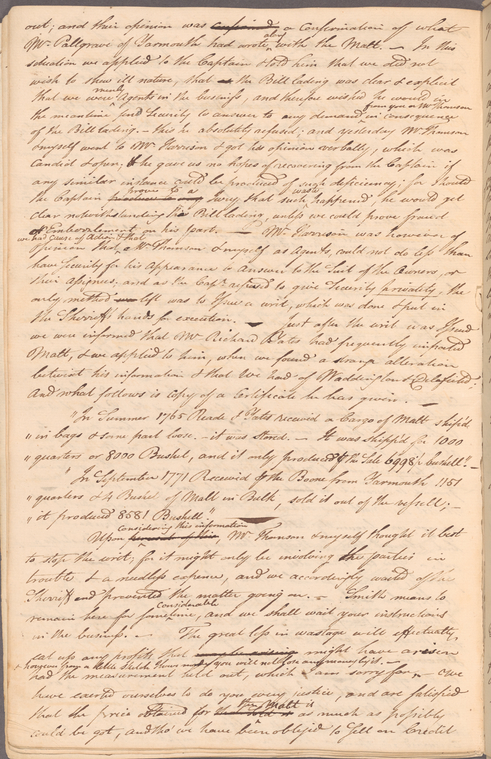 out; and their opinion was confirmed a Confirmation of what
Mr. Pallgrave of Yarmouth had wrote, with the Malt. — In this
situation we applied to the Captain & told him that we did not
wish to shew ill nature, that the Bill Lading was clear & explicit
that we were merely Agents in the business, and therefore wished he would in
from you or Mr Thomson
the meantime find Security to answer to any demand in consequence
of the Bill Lading — this he absolutely refused; and yesterday Mr. Thomson
& myself went to Mr. Harrison & got his opinion verbally, which was
Candid & open; & he gave us no hopes of recovering from the Captain if
any similar instance could be produced of such deficiency; for should
the Captain swear, that such wastage happened he would get
clear notwithstanding his Bill Lading, unless we could prove fraud
or Embezzlement on his part. — Mr. Harrison was however of
we had Cause of Action & that
Opinion that Mr. Thomson & myself as Agents, could not do less than
have Security for his Appearance to Answer to the Suit of the Owners, or
their Assignees, and as the Capt. refused to give Security privately, the
only method left was to Issue a writ, which was done & put in
the Sheriffs hands for execution. — Just after the writ was Issued
we were informed that Mr. Richard Yates had frequently imported
Malt, & we applied to him, when we found a strange alteration
betwixt his information & that we had of Waddington &
And what follows is Copy of a Certificate he has given. —
"In Summer 1765 Reade & Yates received a Cargo of Malt ship'd
" in bags & some part loose. — it was stored. — It was shipp'd for 1000
" quarters or 8000 Bushel, and it only produced the Sale 6998½ bushell". —
"In September 1771 Received the Boone from Yarmouth 1151
" quarters & 4 Bushel of Malt in Bulk, sold it out of the vessell; —
" it produced 8581 Bushell."
considering this information
Upon Mr. Thomson & myself thought it best
to stop the writ; for it might only be involving the parties in
trouble & a needless expence, and we accordingly waited of the
Sheriff and prevented the matter going on. — Smith means to
considerable
remain here for sometime, and we shall wait your instructions
in the business. — The great loss in wastage will effectually
eat up any profits that might have arisen
however from a little Sketch you will not lose any money by it. —
had the measurement held out, which I am sorry for. — We
have exerted ourselves to do you every justice, and are satisfied
that the price obtained for the Malt is as much as possibly
could be got, and tho' we have been oblig'd to Sell on Credit